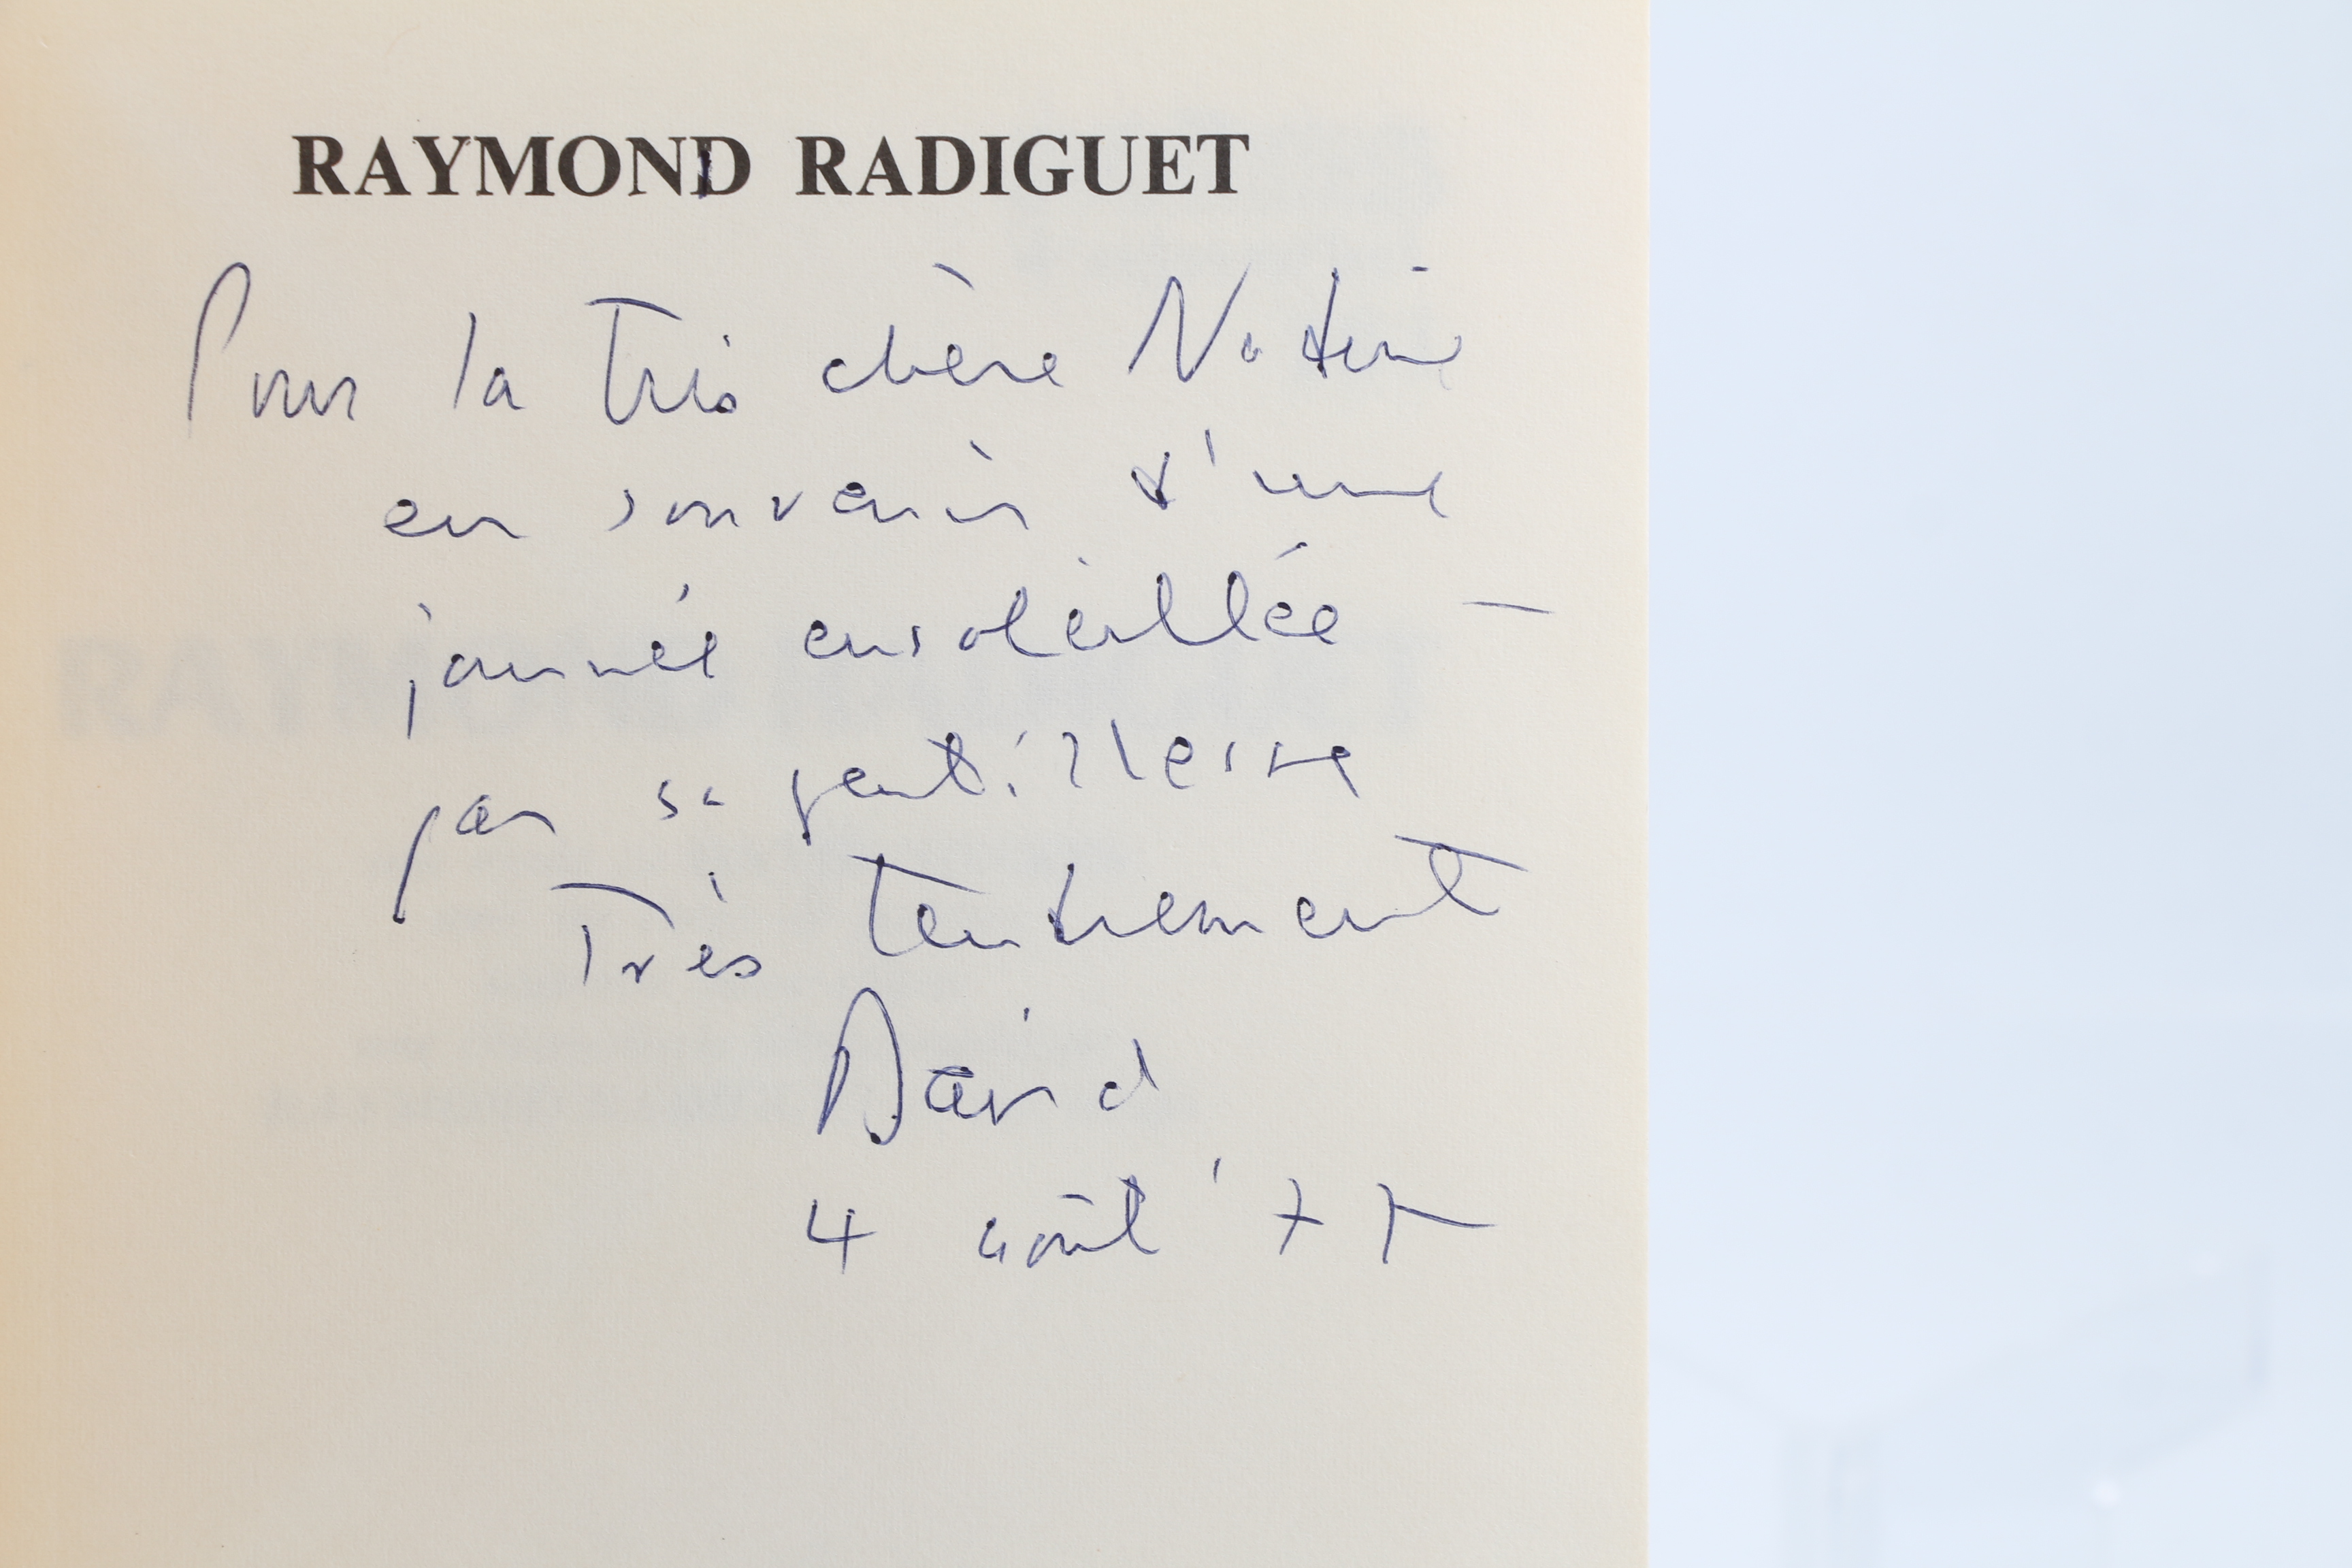 RAYMOND RADIGUET
Pour la très chère Nadine
en souvenir d'une
journée ensoleillée –
par sa gentillesse
Très tendrement
David
4 août '77